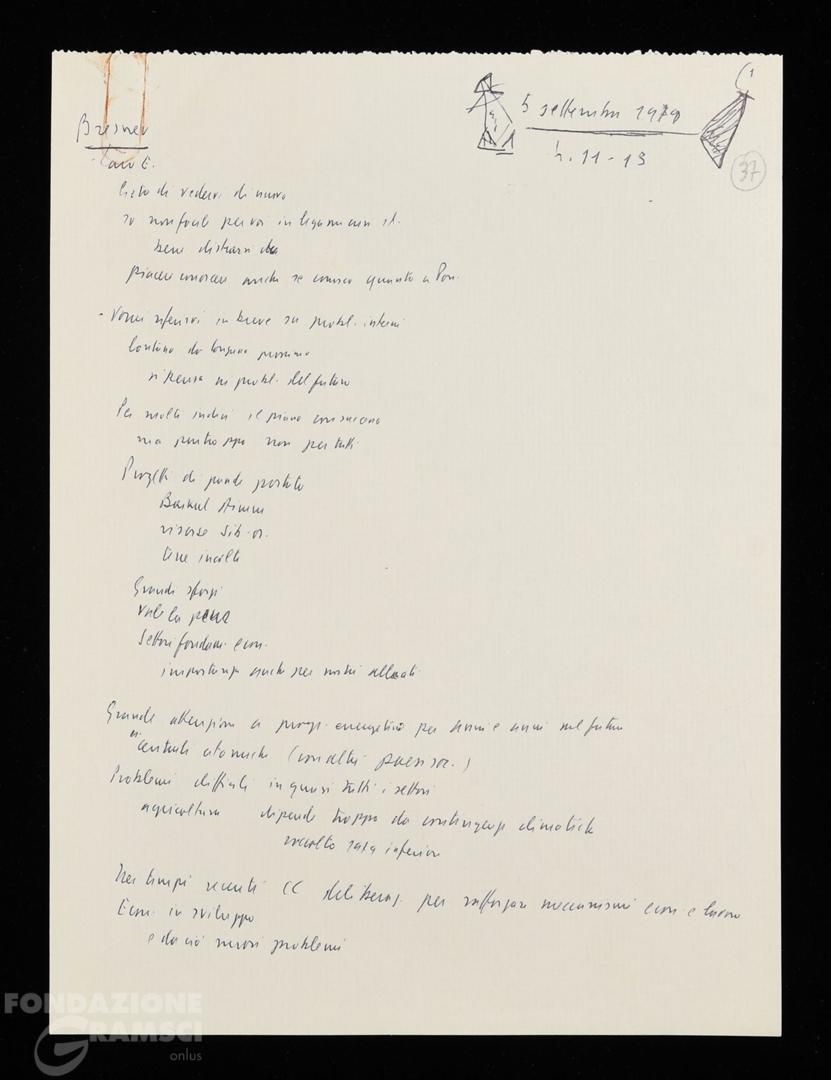 5 settembre 1979
h. 11-13
37
Bresnev
Caro E.
lieto di vedervi di nuovo
so non facile per voi in
bene distrarsi da
piacere conoscere anche se conosco quanto a Pon.
- Vorrei riferirvi in breve su probl. interni
lontano da
si pensa ai probl. del futuro
Per molti indici il piano
ma purtroppo non per tutti
Progetti di grande portata
Baikal Amur
risorse Sib. or.
terre incolte
Grandi sforzi
vale la pena
Settori fondam. econ.
importanza anche per nostri alleati
Grande attenzione a progr. energetico per anni e anni nel futuro
centrali atomiche (con altri paesi soc.)
Problemi difficili in quasi tutti i settori
agricoltura dipende troppo da contingenze climatiche
raccolto sarà inferiore
Nei tempi recenti CC deliberaz. per rafforzare meccanismi econ. e lavoro
Econ. in sviluppo
e da ciò nuovi problemi
FONDAZIONE
GRAMSCI
onlus